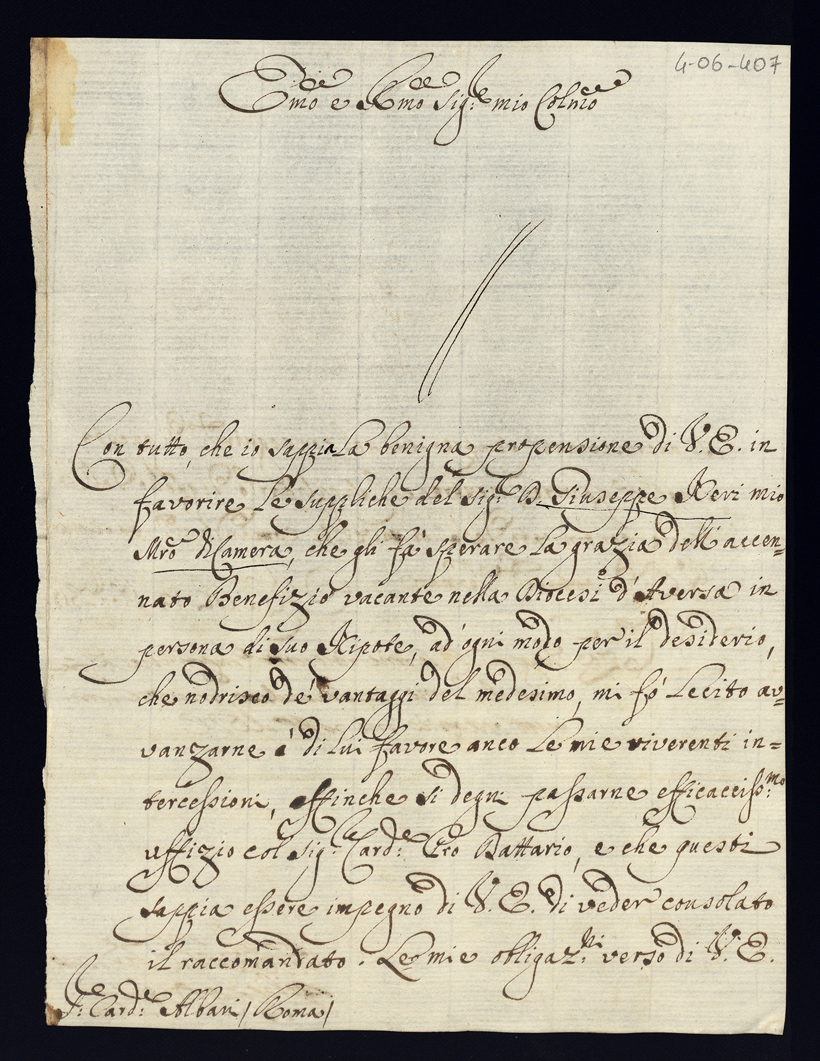 4-06-407
Emo e Rmo Sig:re mio Colmo
Con tutto, che io sappia la benigna propensione di V. E. in
favorire le suppliche del Sig:r D. Giuseppe Neri mio
Mro di Camera, che gli fà sperare la grazia dell'accen=
nato Benefizio vacante nella Diocesi d'Aversa in
persona di suo Nipote, ad ogni modo per il desiderio,
che nodrisco de' vantaggi del medesimo, mi fò lecito av=
vanzarne à di lui favore anco le mie riverenti in=
tercessioni, affinche si degni passarne efficaciss:mo
uffizio col Sig:r Card:le Datario, e che questi
sappia essere impegno di V. E. di veder consolato
il raccomandato. Le mie obligaz:ni verso di V. E.
S:r Card:le Albani / Roma /